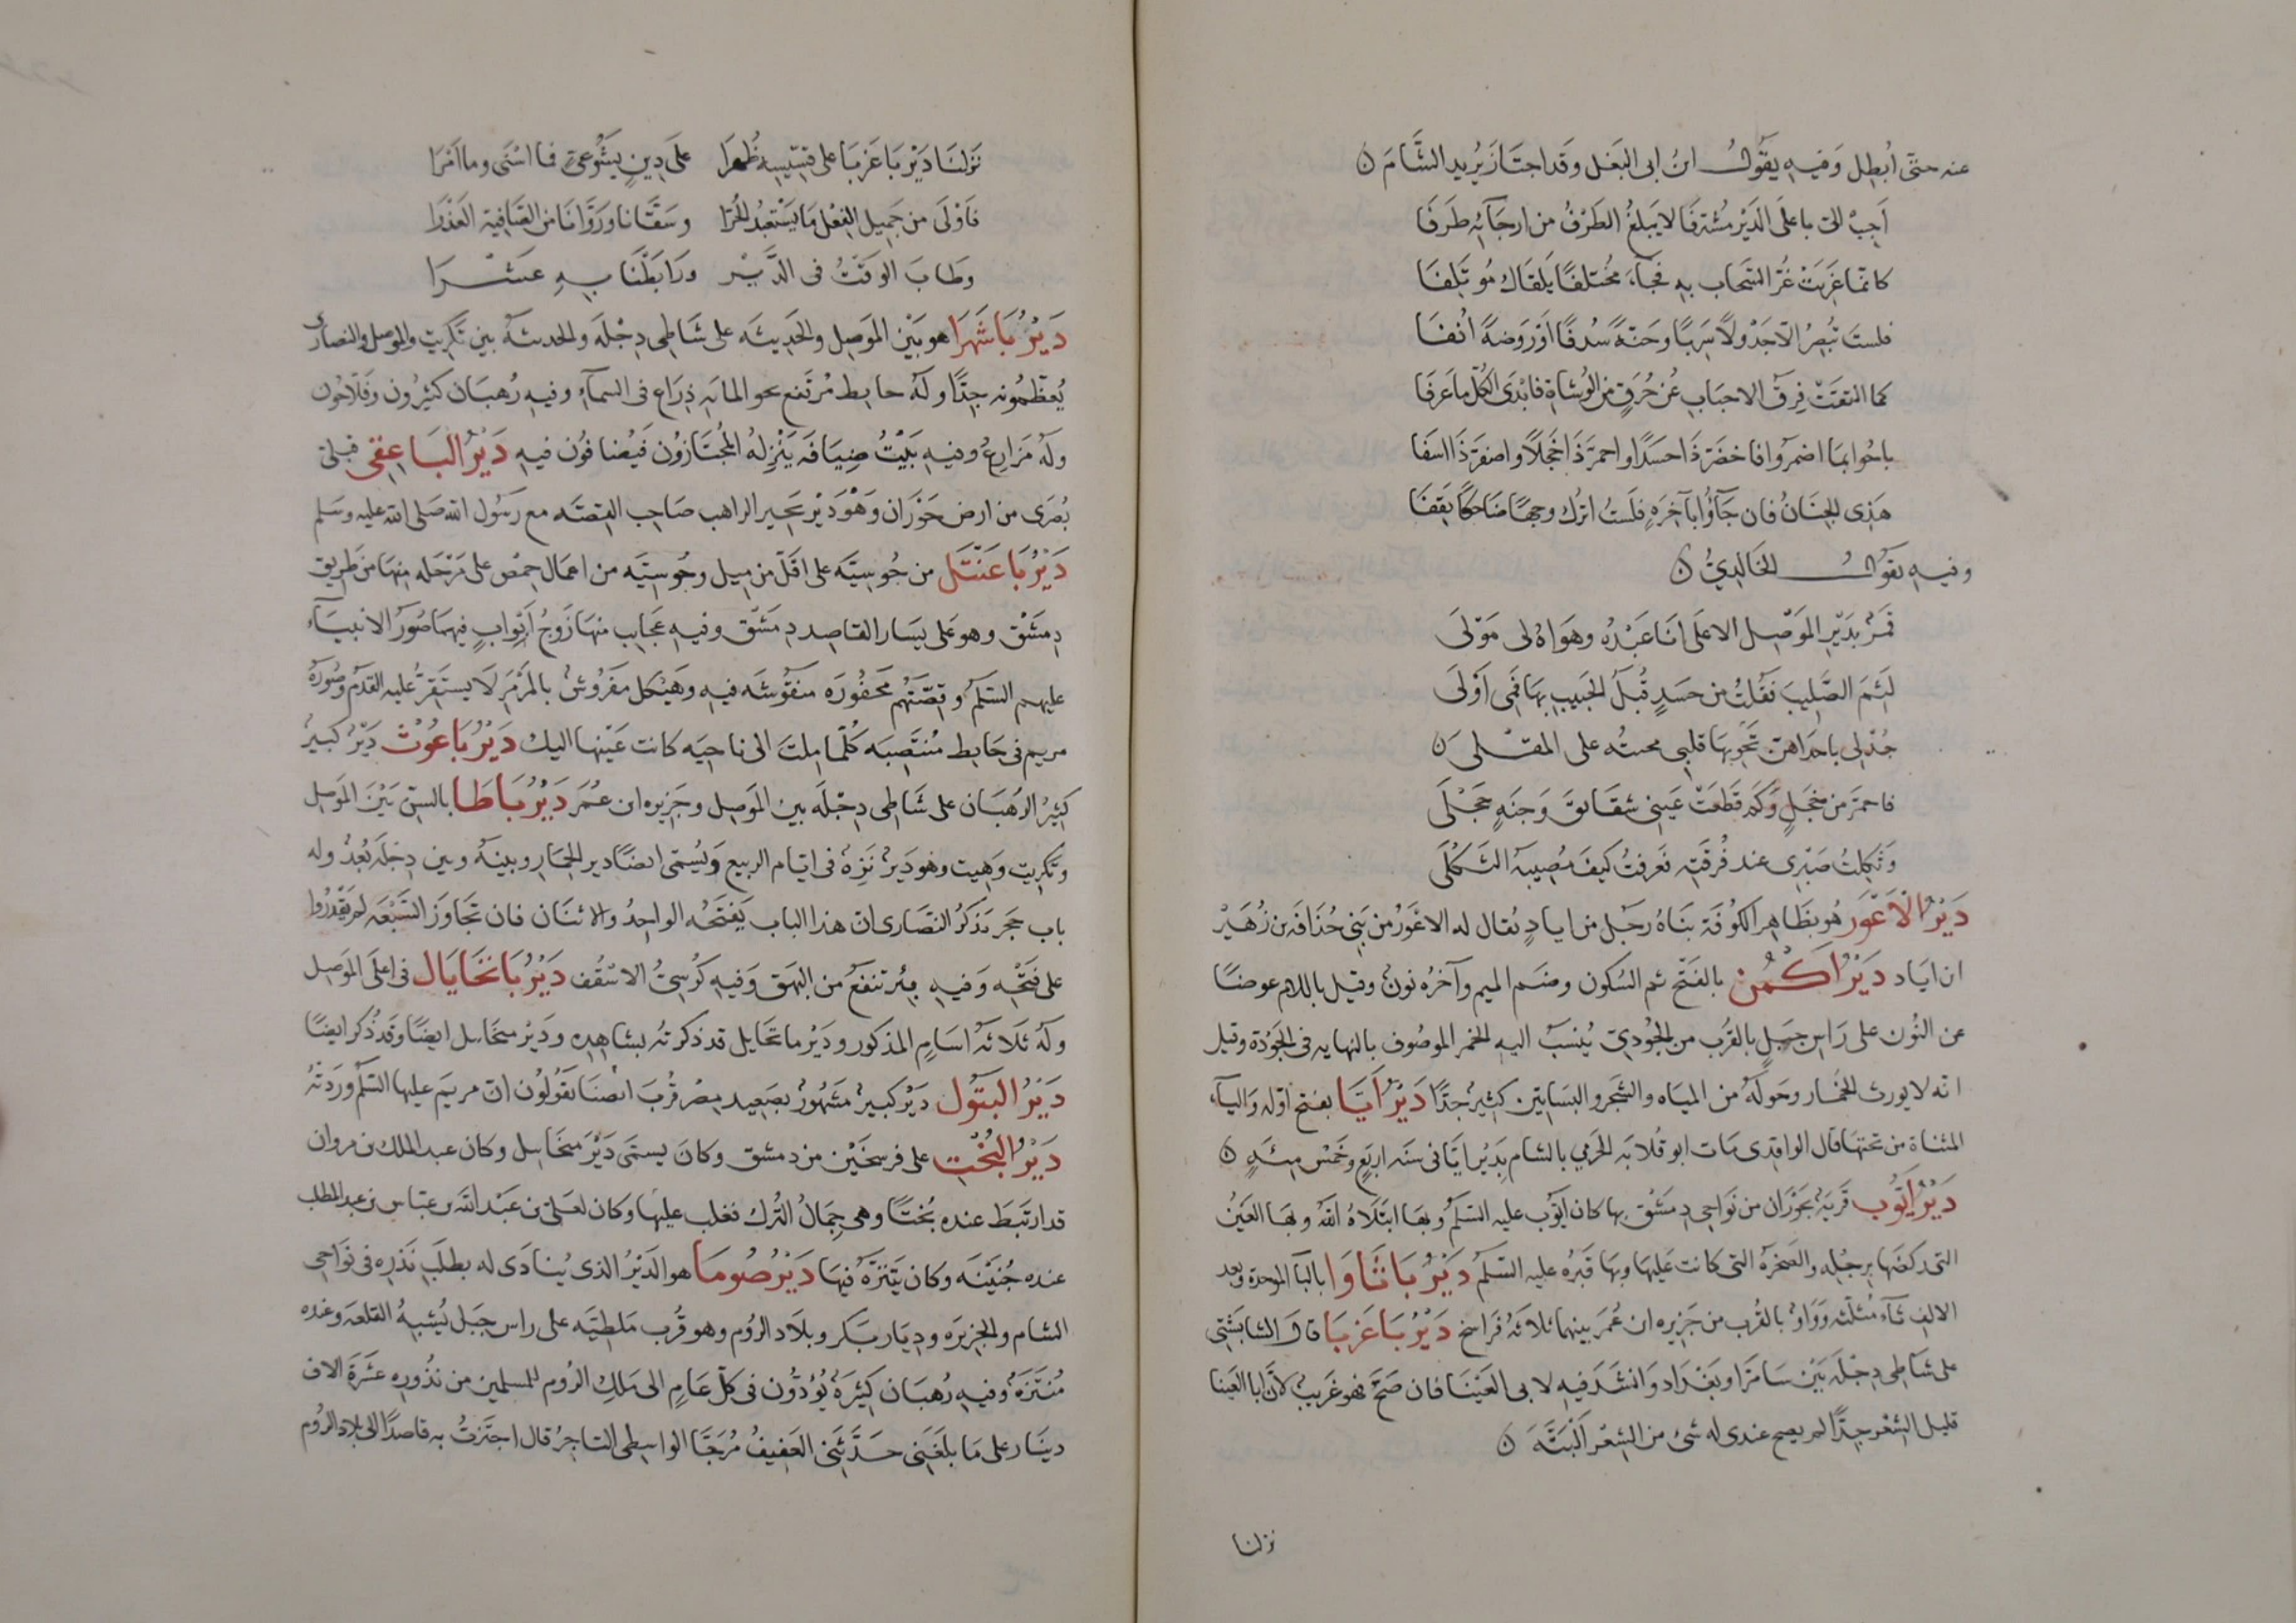 عنه حتى أبطل وفيه يقول ابن ابى البغل وقد اجتاز يريد الشام ن
باعلى الدير مشترفا لا يبلغ الطرف من ارجائه طرفا
كانما غريت غر السحاب به فجاء مختلفا يلقاك موتلفا
فلست تبصر الا جدولا سربا وجنة سدفا او روضة انفا
كما التقت فرق الاحباب عن حرق من الوشاة فابدى الكل ما عرفا
باحوا بما اضمروا فاخضر ذا حسدا واحمر ذا خجلا واصفر ذا اسفا
هذى الجنان فان جاؤا بآخره فلست اترك وجها ضاحكا يقفا
وفيه يقول الخالدي ن
قمر بدير الموصل الاعلى انا عبده وهواه لى مولى
لثم الصليب فقلت من حسد قبل الحبيب بها فمى اولى
جد لى باحداهن تحو بها قلبى محبته على المقلى ن
فاحمر من خجل وكم قطعت عينى شقائق وجنة خجلى
وثكلت صبرى عند فرقته فعرفت كيف مصيبة الثكلى
دير الاعور هو بظاهر الكوفة بناه رجل من اياد يقال له الاعور من بنى حذافة بن زهير
ابن اياد دير اكمن بالفتح ثم السكون وضم الميم وآخره نون وقيل باللام عوضا
عن النون على راس جبل بالقرب من الجودي ينسب اليه الخمر الموصوف بالنهايه فى الجودة وقيل
انه لا يورث الخمار وحوله من المياه والشجر والبساتين كثير جدا دير ايا بفتح اوله والياء
المثناة من تحتها قال الواقدى مات ابو قلابه الجرمي بالشام بدير ايا فى سنه اربع وخمس مئه ن
دير ايوب قرية بحوران من نواحى دمشق بها كان ايوب عليه السلم وبها ابتلاه الله وبها العين
التى ركضها برجله والصخرة التى كانت عليها وبها قبره عليه السلم دير باثاوا بالبآ الموحدة وبعد
الالف ثاء مثلثه وواو بالقرب من جزيره ابن عمر بينهما ثلاثة فراسخ دير باعربا قال الشابشتي
على شاطى دجلة بين سامرا وبغداد وانشد فيه لابى العينا فان صح فهو غريب لان ابا العينا
قليل الشعر جدا لم يصح عندى له شئ من الشعر البتة ن
نزلنا
نزلنا دير باعربا على قسيسه ظهرا على دين يشوعى فما اسنى وما امرا
فاولى من جميل الفعل ما يستعبد الحرا وسقانا وروانا من الصافية العذرا
وطاب الوقت فى الدير ورابطنا به عشرا
دير باشهرا هو بين الموصل والحديثه على شاطى دجله والحديثه بين تكريت والموصل والنصارى
يعظمونه جدا وله حايط مرتفع نحو المايه ذراع فى السماء وفيه رهبان كثيرون وفلاحون
وله مزارع وفيه بيت ضيافه ينزله المجتازون فيضافون فيه دير الباعقى قبلى
بصرى من ارض حوران وهو دير بحير الراهب صاحب القصه مع رسول الله صلى الله عليه وسلم
دير باعنتل من جوسيه على اقل من ميل وجوسيه من اعمال حمص على مرحله منها من طريق
دمشق وهو على يسار القاصد دمشق وفيه عجايب منها ازوج ابواب فيهما صور الانبياء
عليهم السلم وقصتهم محفوره منقوشه فيه وهيكل مفروش بالمرمر لا يستقر عليه القدم وصورة
مريم فى حايط منتصبه كلما ملت الى ناحيه كانت عينها اليك دير باعوث دير كبير
كثير الرهبان على شاطى دجله بين الموصل وجزيره ابن عمر دير باطا بالسن بين الموصل
وتكريت وهيت وهو دير نزه فى ايام الربيع ويسمى ايضا دير الحمار وبينه وبين دجله بعد وله
باب حجر يذكر النصارى ان هذا الباب يفتحه الواحد والاثنان فان تجاوز السبعه لم يقدروا
على فتحه وفيه بئر تنفع من البهق وفيه كرسى الاسقف دير بانخايال فى اعلى الموصل
وله ثلاثه اسام المذكور ودير مانخايل قد ذكرته بشاهده ودير ميخاىيل ايضا وقد ذكر ايضا
دير البتول دير كبير مشهور بصعيد مصر قرب انصنا يقولون ان مريم عليها السلم وردته
دير البخت على فرسخين من دمشق وكان يسمى دير ميخاىيل وكان عبد الملك بن مروان
قد ارتبط عنده بختا وهى جمال الترك فغلب عليها وكان لعلى بن عبد الله بن عباس بن عبد المطلب
عنده جنينه وكان يتنزه فيها دير صوما هو الدير الذى ينادى له بطلب نذره فى نواحى
الشام والجزيره وديار بكر وبلاد الروم وهو قرب ملطيه على راس جبل يشبه القلعه وعنده
منتزه وفيه رهبان كثيرة يؤدون فى كل عام الى ملك الروم للمسلمين من نذوره عشرة الاف
دينار على ما بلغنى حدثنى العفيف مرجا الواسطى التاجر قال اجتزت به قاصدا الى بلاد الروم